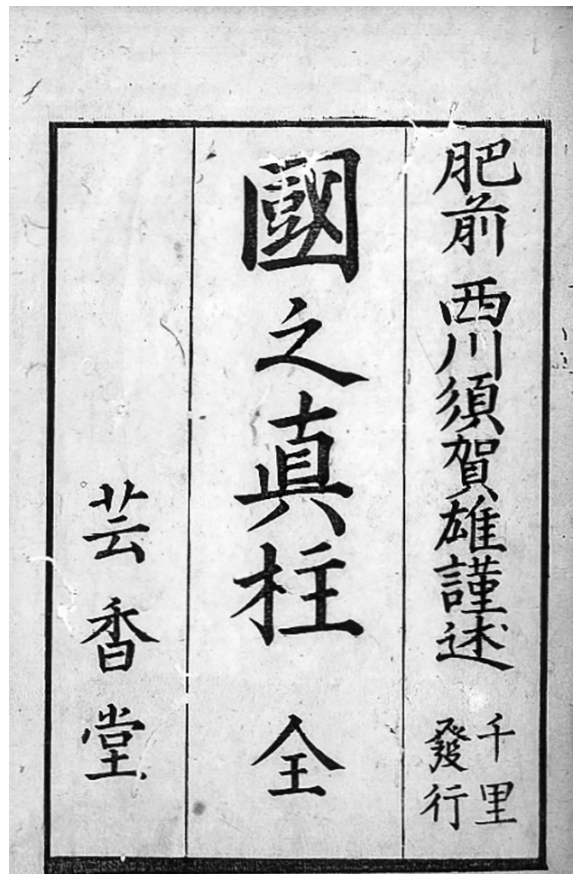 肥前 西川須賀雄謹述
千里
發行
國之真柱 全
芸香堂